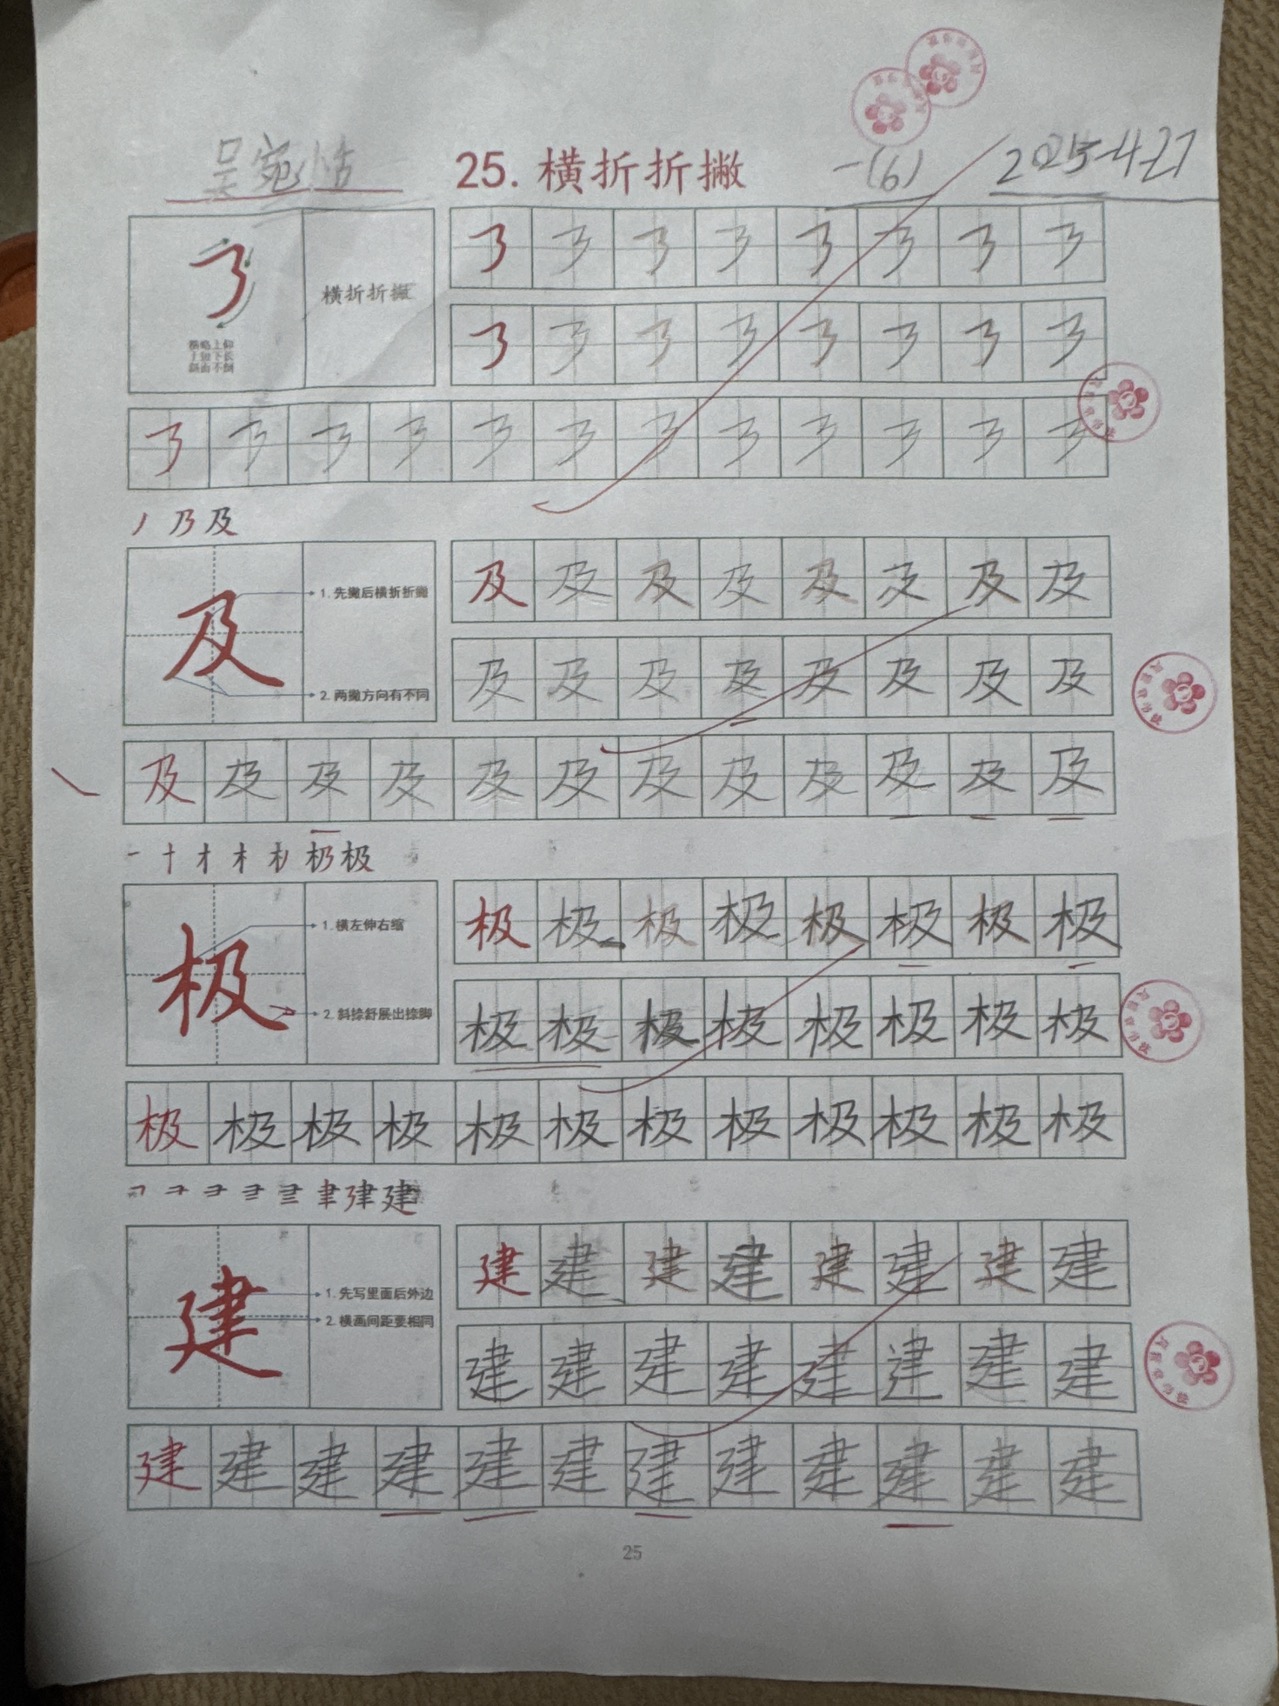 吴宛恬 25. 横折折撇 一(6) 2025-4-27
横折折撇
横略上仰
上短下长
斜而不倒
丿 乃 及
及 及 及 及 及 及 及 及 及
1. 先撇后横折折撇
2. 两撇方向有不同
及 及 及 及 及 及 及 及
及 及 及 及 及 及 及 及 及 及 及 及
一 十 才 木 札 极 极
极 极 极 极 极 极 极 极 极
1. 横左伸右缩
2. 斜捺舒展出捺脚
极 极 极 极 极 极 极 极
极 极 极 极 极 极 极 极 极 极 极 极
聿 建 建
建 建 建 建 建 建 建 建 建
1. 先写里面后外边
2. 横画间距要相同
建 建 建 建 建 建 建 建
建 建 建 建 建 建 建 建 建 建 建 建
25